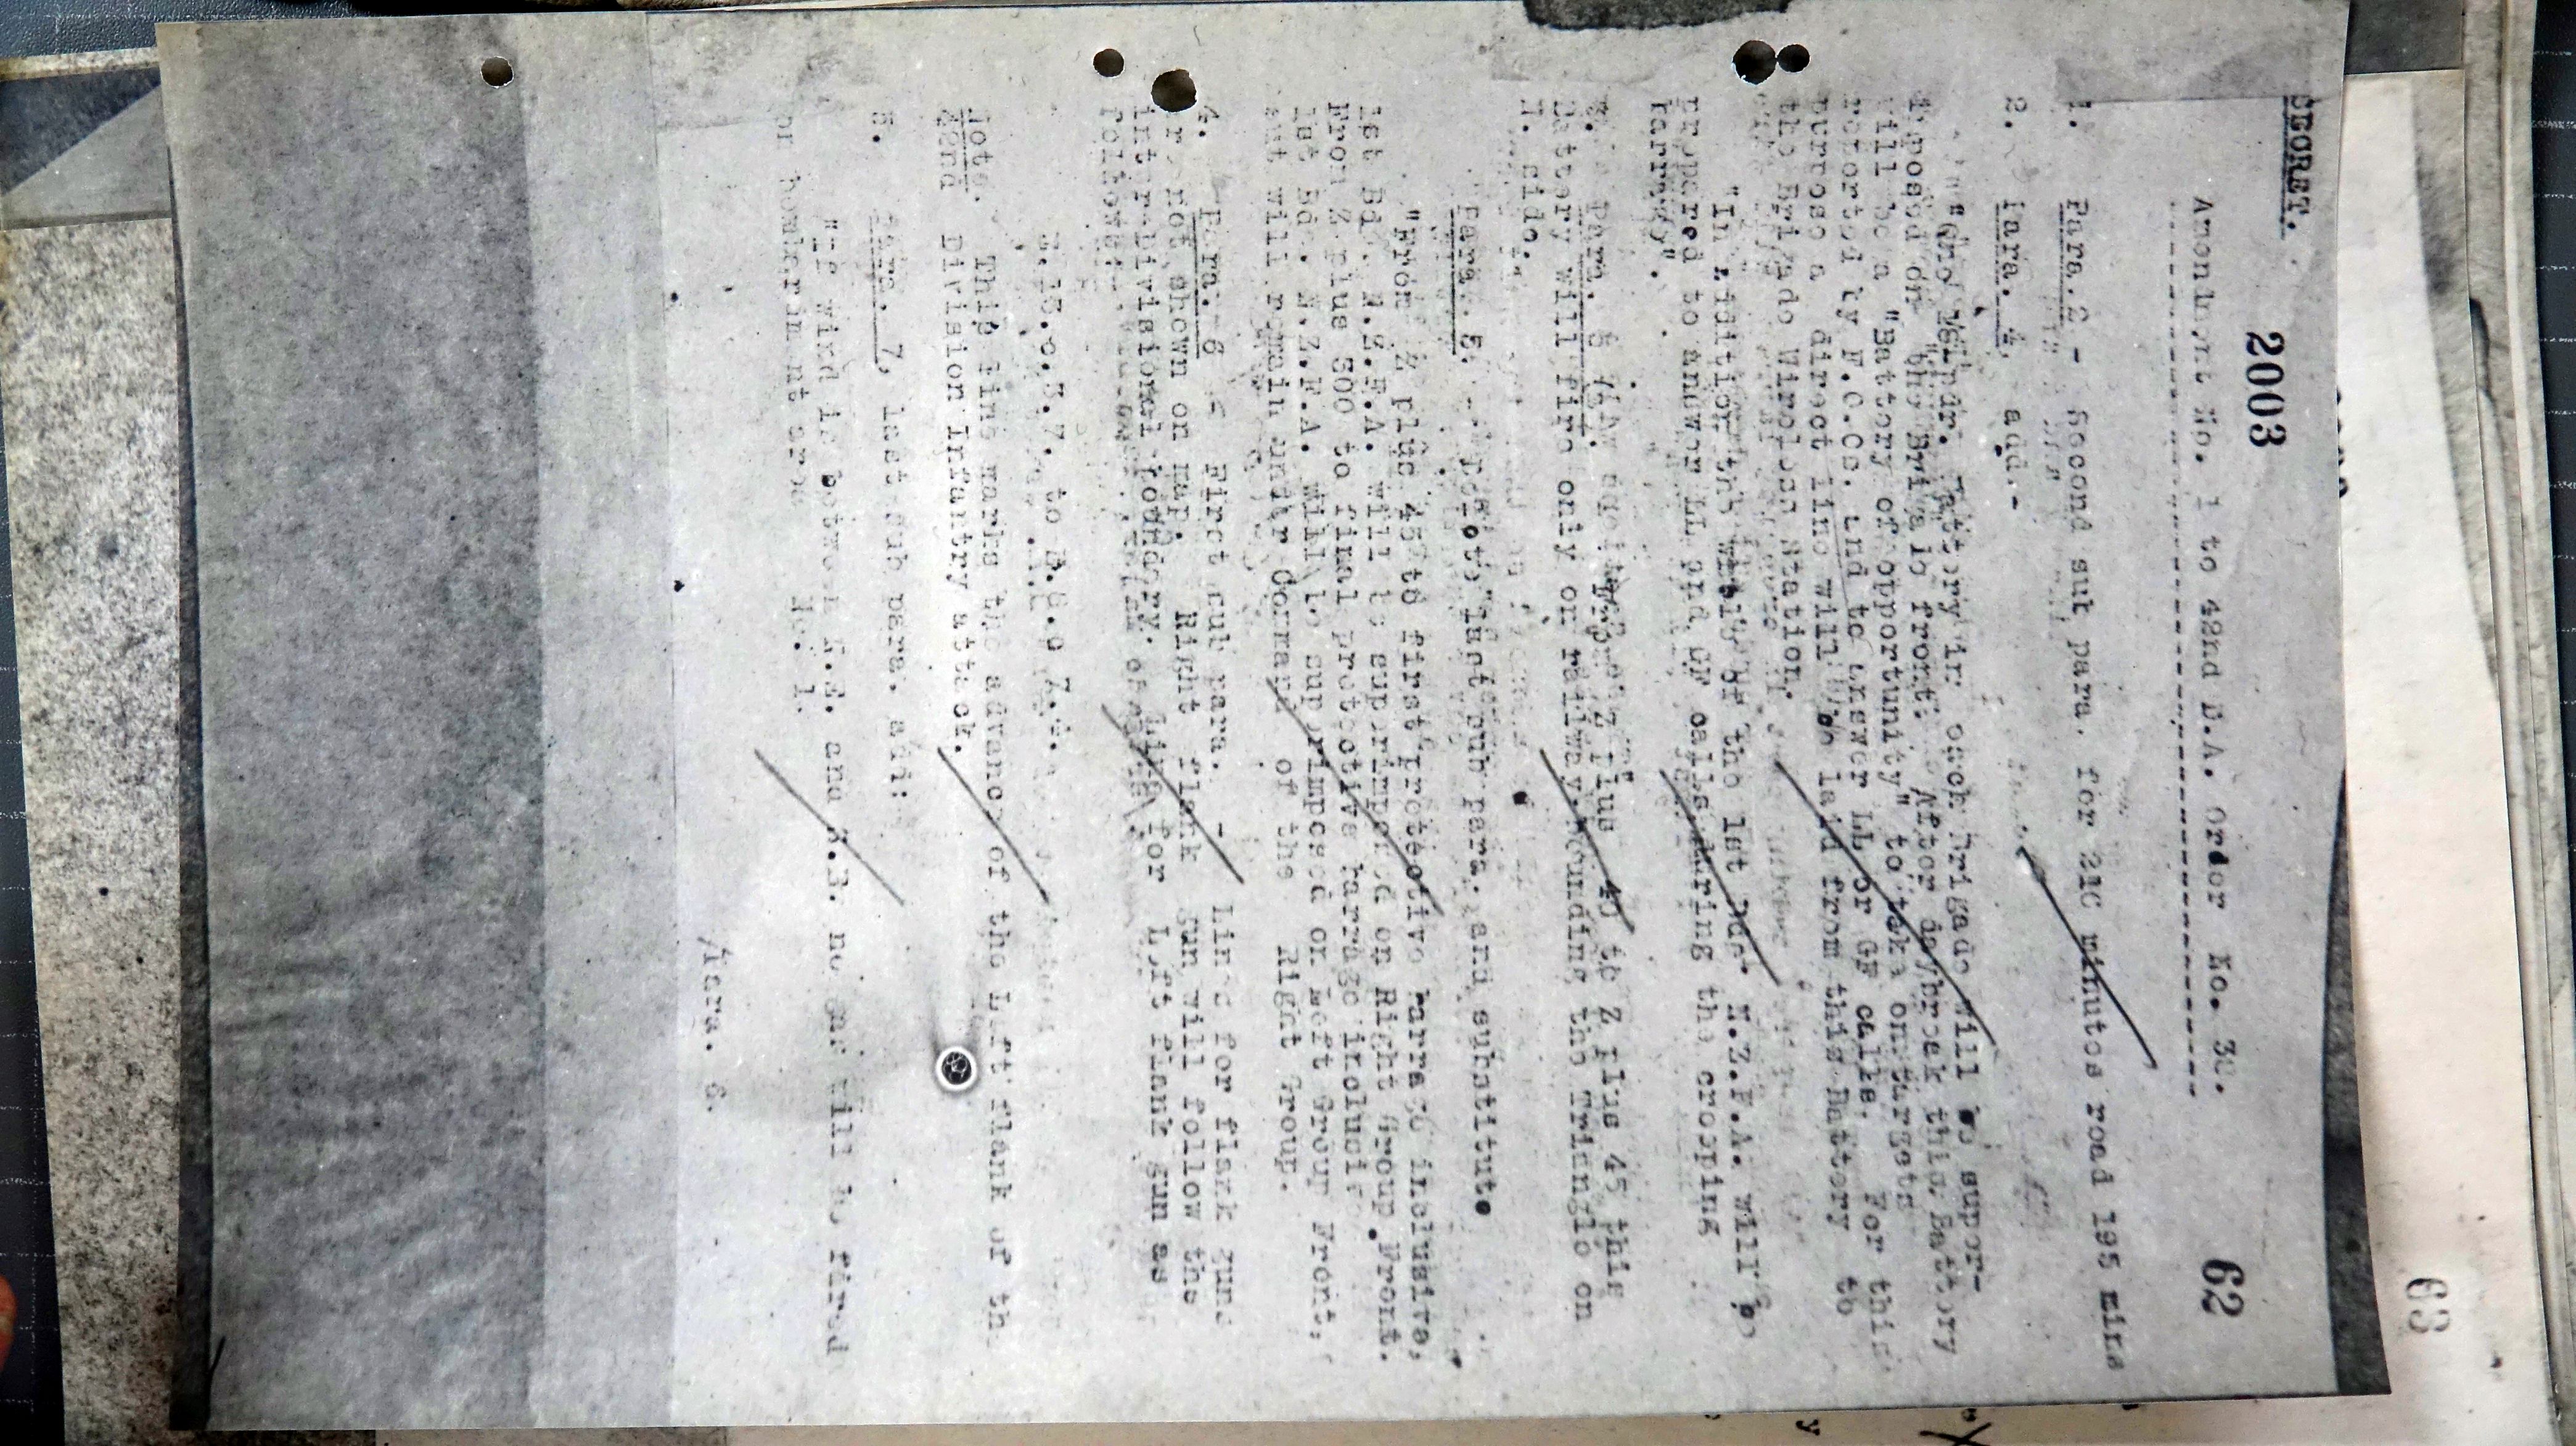 SECRET.
2003
62
63
Amendment No. 1 to 42nd D.A. Order No. 30.
1. Para.2 - Second sub para. for 210 minutes read 195 mins
2. Para. 4, add.-
"One 18pdr. Battery in each Brigade will be super-
imposed on the Brigade front. After daybreak this Battery
will be a "Battery of opportunity" to take on targets
reported by F.O.Os. and to answer LL or GF calls. For this
purpose a direct line will be laid from this Battery to
the Brigade Wireless Station.
"In addition the whole of the 1st Bde. N.Z.F.A. will be
prepared to answer LL and GF calls during the creeping
barrage".
Para. 5 Z plus 45 to Z plus 45 this
Battery will fire only on railway bounding the Triangle on
N. side.
Para. 5. - last sub para. and substitute.
"From Z plus 45 to first protective barrage inclusive,
1st Bde. N.Z.F.A. will be superimposed on Right Group Front.
From Z plus 300 to final protective barrage inclusive
1st Bde. N.Z.F.A. will be superimposed on Left Group Front,
but will remain under Command of the Right Group.
4. Para. 6 First sub para. - Lines for flank guns
are not shown on map. Right flank gun will follow the
inter-divisional boundary. Line for Left flank gun as
follows:
Note. This line marks the advance of the Left flank of the
42nd Division Infantry attack.
5. Para. 7, last sub para. add:
"If wind is between and no gas will be fired
for bombardment No. 1.
/Para. 8.